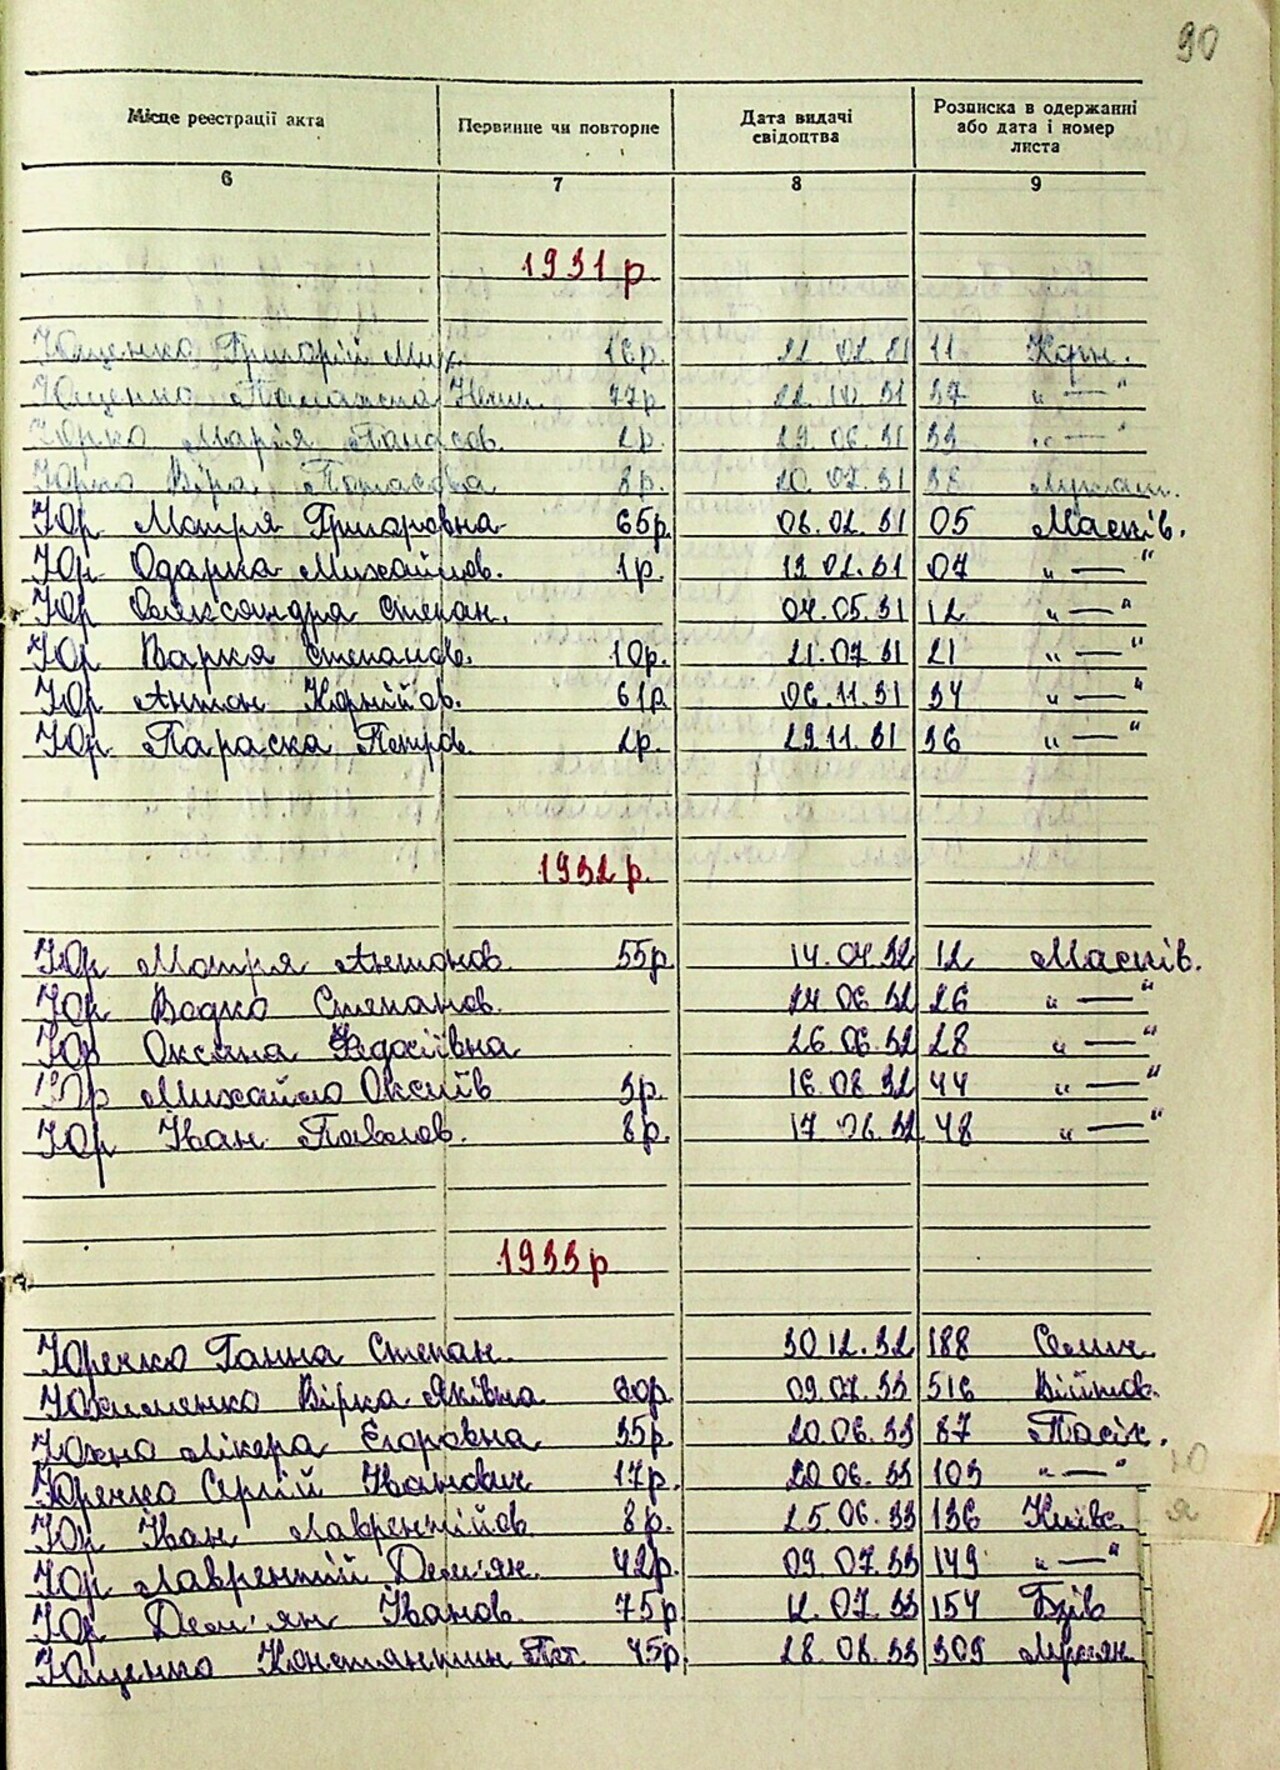 90
Місце реєстрації акта Первинне чи повторне Дата видачі свідоцтва Розписка в одержанні або дата і номер листа
6 7 8 9
1931 р
Ющенко Григорій Мих. 16р. 22. 02 31 11 Корн.
Ющенко 77р 22. 10 31 37 „ — “
Юрко Марія Панасов. 2р. 29. 06. 31 33 „ — “
Юрко Віра Панасова 8р. 20. 07. 31 38
Юр Мотря Григоровна 65р. 06. 02. 31 05 Маснів.
Юр Одарка Михайлов. 1р. 19 02. 31 07 „ — “
Юр Олександра Степан. 04. 05. 31 12 „ — “
Юр Варка Степанов. 10р. 21. 07 31 21 „ — “
Юр Антон Корнійов. 61р. 06. 11. 31 34 „ — “
Юр Параска Петров. 2р. 29. 11. 31 36 „ — “
1932 р.
Юр Мотря Антонов. 55р. 14. 04. 32 12 Маснів.
Юр Водко Степанов. 24. 06. 32 26 „ — “
Юр Оксана Федосіївна 26. 06. 32 28 „ — “
Юр Михайло Оксиїв 3р. 16. 08. 32 44 „ — “
Юр Іван Павлов. 8р. 17. 06. 32 48 „ — “
1933 р
Юренко Ганна Степан. 30 12. 32 188
Юхименко Вірка Яківна 60р. 09. 07. 33 516 Війтов.
Юхно Лікера Єгоровна 35р. 20. 06. 33 87 Пасіч.
Юренко Сергій Іванович 17р. 20 06. 33 103 „ — “
Юр Іван Лаврентійов. 8р. 25. 06. 33 136 Київс.
Юр Лаврентій Дем'ян. 42р. 09. 07. 33 149 „ — “
Юр Дем'ян Іванов. 75р 12. 07. 33 154 Бзів
Ющенко Константин Пет. 45р. 28. 08. 33 309
Ю
Я